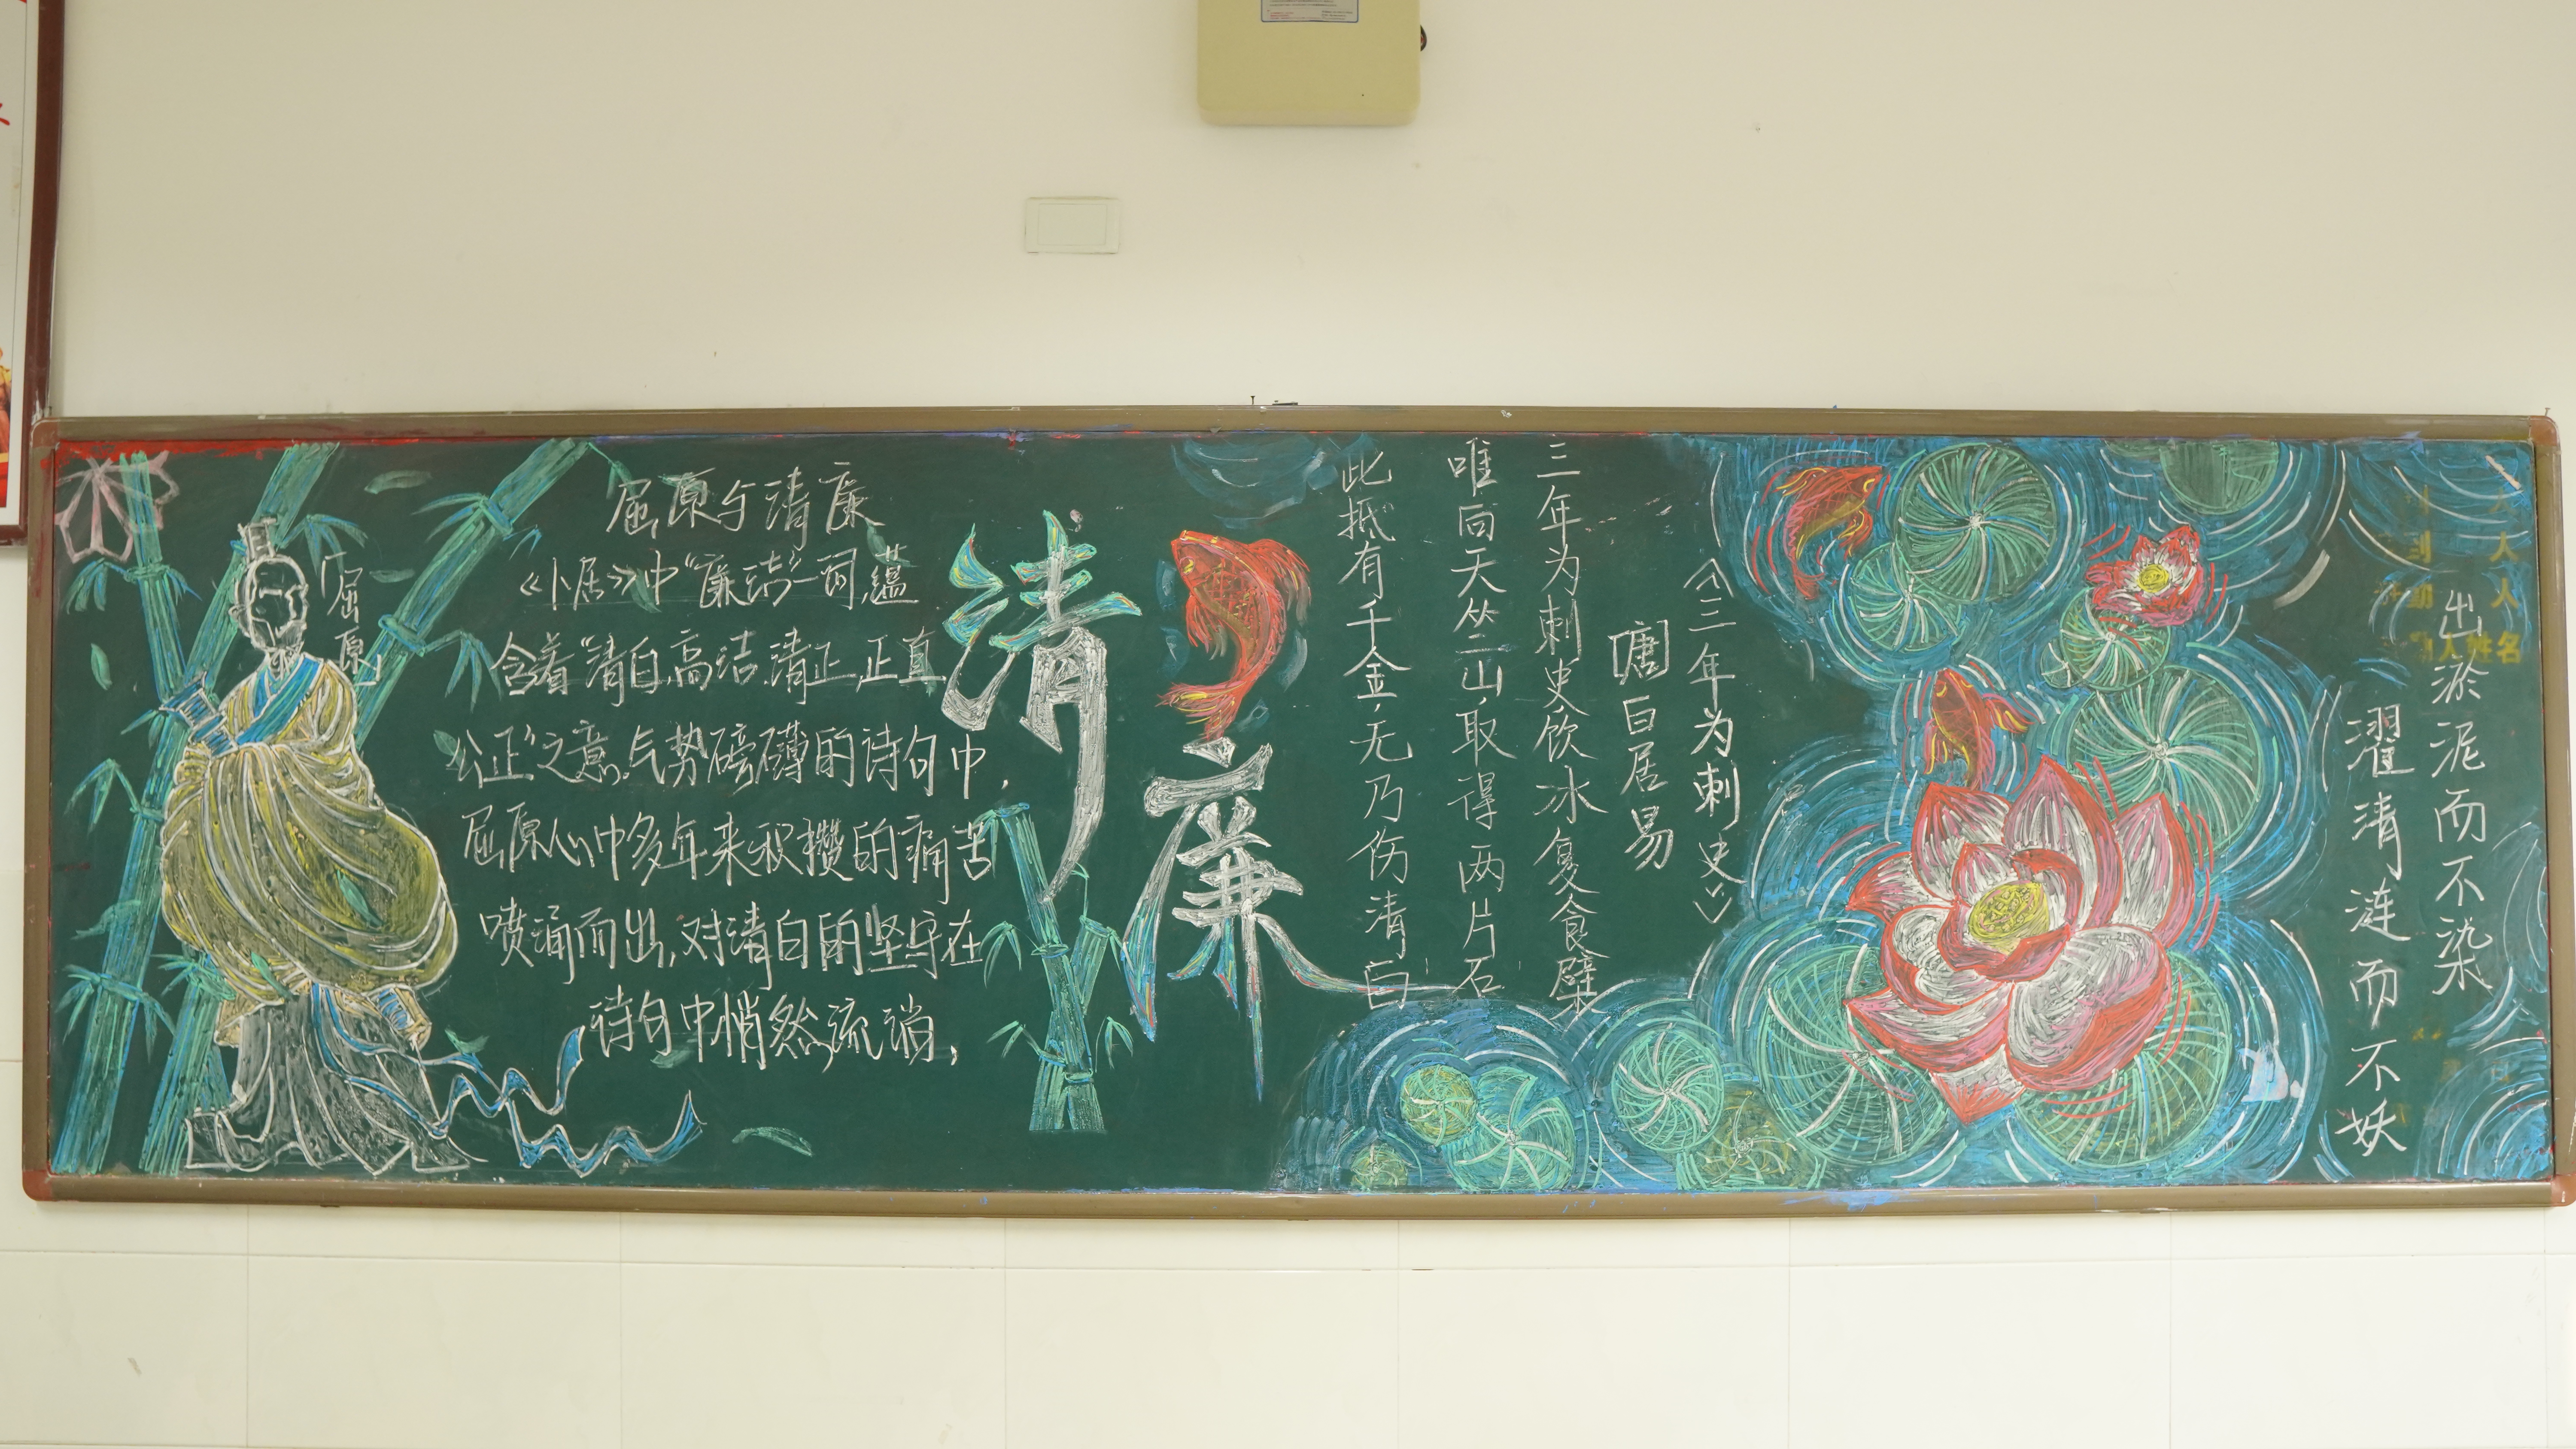 屈原与清廉
《卜居》中“廉洁”一词,蕴
含着“清白,高洁,清正,正直
公正”之意。气势磅礴的诗句中,
屈原心中多年来积攒的痛苦
喷涌而出,对清白的坚守在
诗句中悄然流淌,
「屈原」
清廉
《三年为刺史》
[唐]白居易
三年为刺史,饮冰复食檗
唯向天竺山,取得两片石
此抵有千金,无乃伤清白
出淤泥而不染
濯清涟而不妖
人姓名